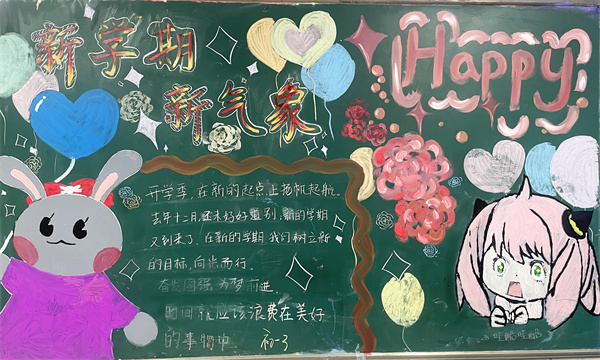 新学期
新气象
Happy
开学季，在新的起点上扬帆起航。
去年十二月，还未好好道别，新的学期
又到来了，在新的学期我们树立新
的目标，向光而行。
奋发图强 为梦而进
时间就应该浪费在美好
的事物中 初一3
哇酷哇酷